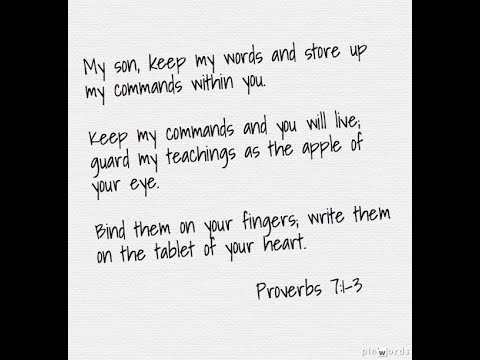 My son, keep my words and store up
my commands within you.
Keep my commands and you will live;
guard my teachings as the apple of
your eye.
Bind them on your fingers; write them
on the tablet of your heart.
Proverbs 7:1-3
pinwords